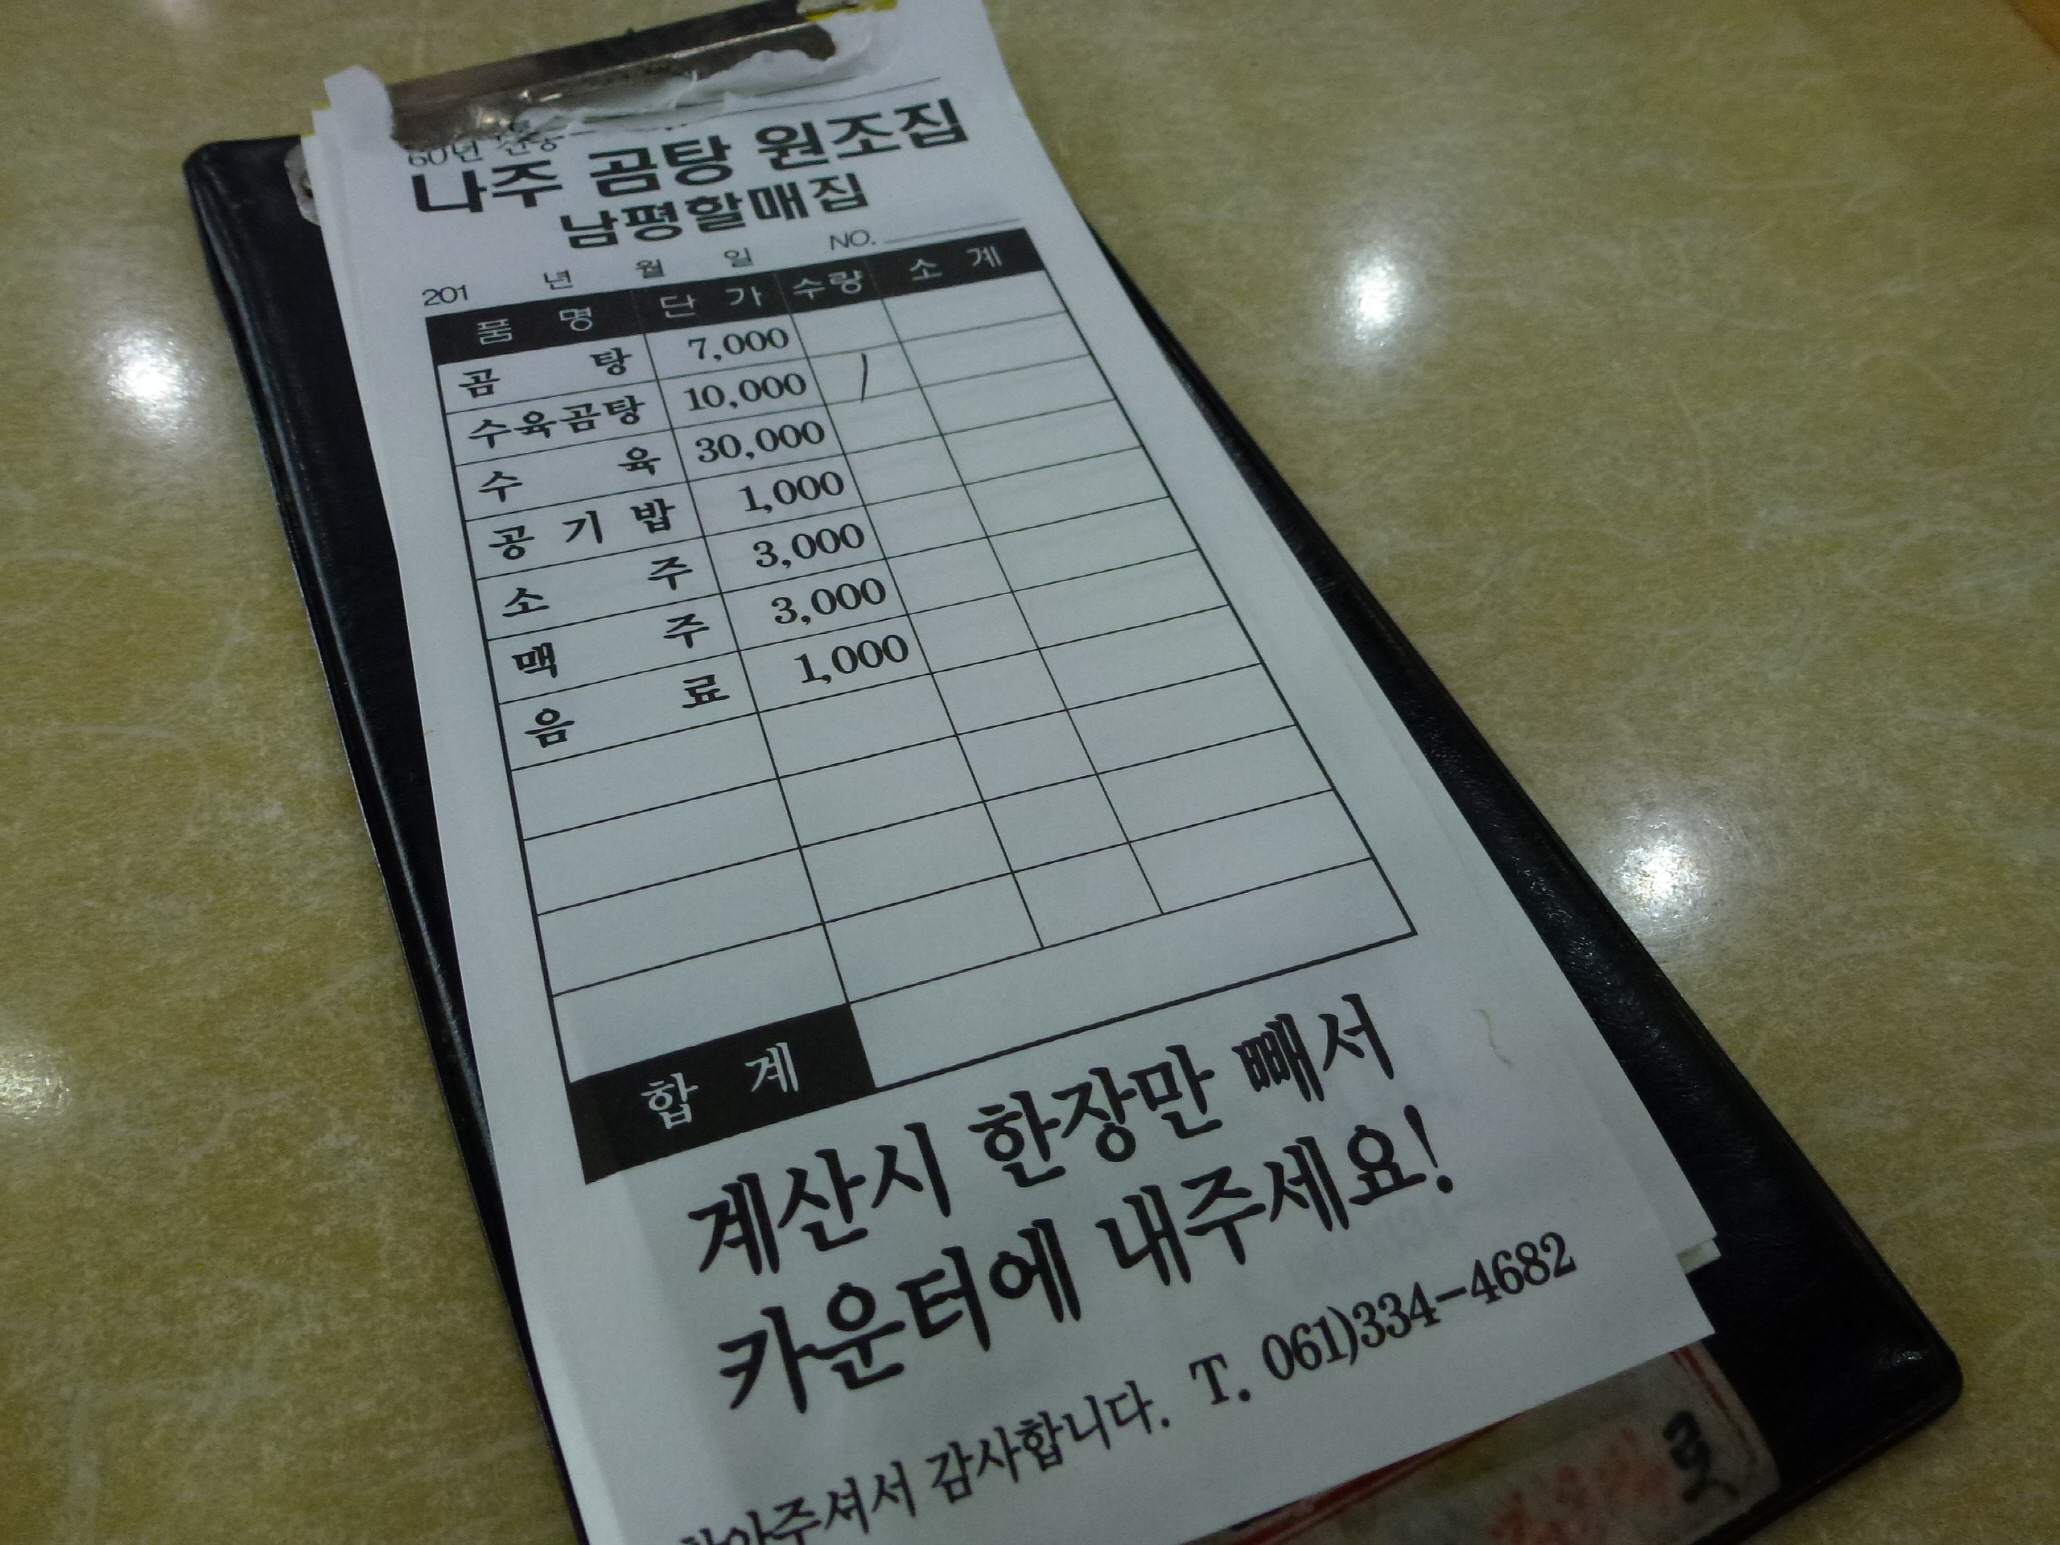 60년 전통
나주 곰탕 원조집
남평할매집
201 년 월 일 NO.
품명 단가 수량 소계
곰탕 7,000
수육곰탕 10,000 /
수육 30,000
공기밥 1,000
소주 3,000
맥주 3,000
음료 1,000
합계
계산시 한장만 빼서
카운터에 내주세요!
찾아주셔서 감사합니다. T. 061)334-4682